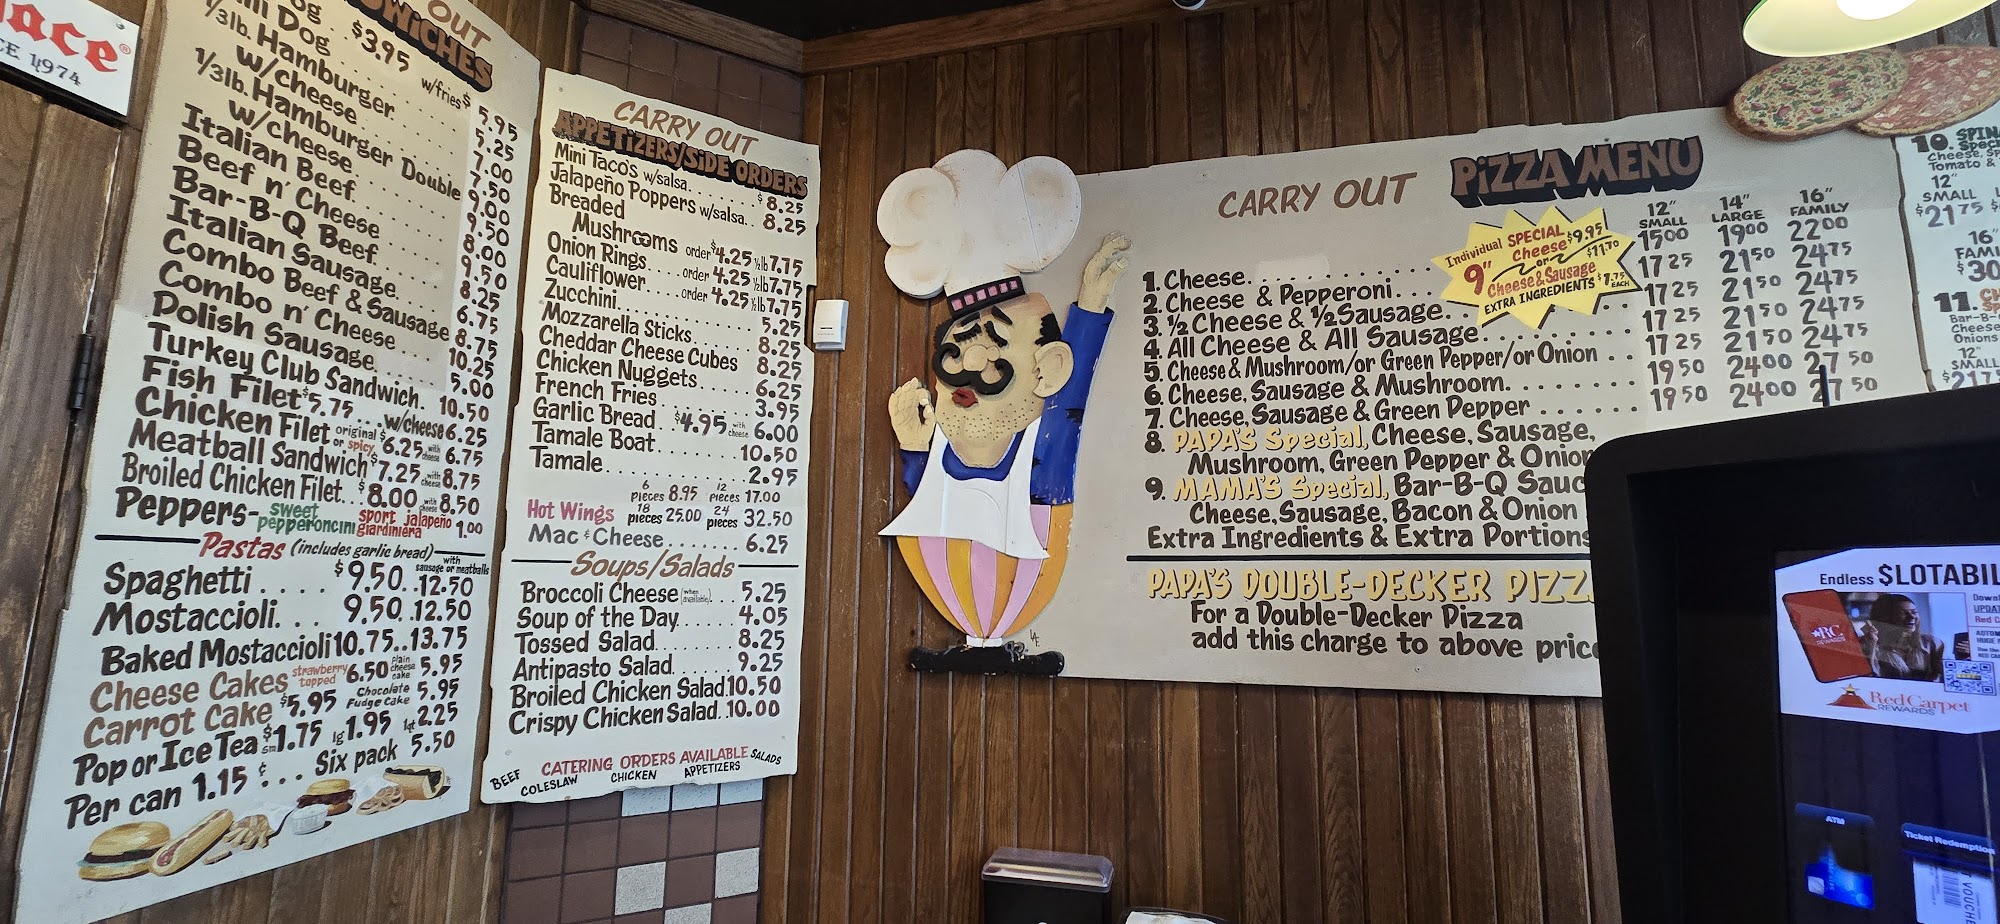 ace®
CE 1974
OUT
WICHES
og
Dog . . $3.95 w/fries $5.95
1/3lb. Hamburger . . . . 5.25
w/cheese . . . . 7.00
1/3lb. Hamburger Double 7.50
w/cheese . . . . 9.00
Italian Beef . . . . 9.50
Beef n' Cheese . . . . 8.00
Bar-B-Q Beef . . . . 9.50
Italian Sausage . . . . 8.25
Combo Beef & Sausage 6.75
Combo n' Cheese . . . . 8.75
Polish Sausage . . . . 10.25
Turkey Club Sandwich . 5.00
Fish Filet $5.75 . . . w/cheese 10.50
Chicken Filet original or spicy $6.25 with cheese 6.25
Meatball Sandwich $7.25 with cheese 6.75
Broiled Chicken Filet . . $8.00 with cheese 8.75
8.50
Peppers- sweet pepperoncini sport jalapeño giardiniera 1.00
Pastas (includes garlic bread) with sausage or meatballs
Spaghetti . . . . $9.50 . . 12.50
Mostaccioli . . . 9.50 . . 12.50
Baked Mostaccioli 10.75 . . 13.75
Cheese Cakes strawberry topped 6.50 plain cheese cake 5.95
Carrot Cake $5.95 Chocolate Fudge Cake 5.95
Pop or Ice Tea sm $1.75 lg 1.95 1qt 2.25
Per can 1.15 ¢ . . . Six pack 5.50
CARRY OUT
APPETIZERS/SIDE ORDERS
Mini Taco's w/salsa . . . . . $8.25
Jalapeño Poppers w/salsa . . 8.25
Breaded
Mushrooms order $4.25 ½lb 7.75
Onion Rings . . . . order 4.25 ½lb 7.75
Cauliflower . . . . order 4.25 ½lb 7.75
Zucchini . . . . 5.25
Mozzarella Sticks . . . . 8.25
Cheddar Cheese Cubes 8.25
Chicken Nuggets . . . . 6.25
French Fries . . . . 3.95
Garlic Bread . $4.95 with cheese 6.00
Tamale Boat . . . . 10.50
Tamale . . . . 2.95
Hot Wings 6 pieces 8.95 12 pieces 17.00
18 pieces 25.00 24 pieces 32.50
Mac & Cheese . . . . . . . 6.25
Soups/Salads
Broccoli Cheese (when available) . . 5.25
Soup of the Day . . . . . 4.05
Tossed Salad . . . . . 8.25
Antipasto Salad . . . . 9.25
Broiled Chicken Salad 10.50
Crispy Chicken Salad . . 10.00
CATERING ORDERS AVAILABLE
BEEF COLESLAW CHICKEN APPETIZERS SALADS
CARRY OUT PIZZA MENU
12" SMALL 14" LARGE 16" FAMILY
Individual SPECIAL
9" Cheese $9.95
or
Cheese & Sausage $11.70
EXTRA INGREDIENTS $1.75 EACH
1. Cheese . . . . 15.00 19.00 22.00
2. Cheese & Pepperoni . . . 17.25 21.50 24.75
3. ½ Cheese & ½ Sausage . 17.25 21.50 24.75
4. All Cheese & All Sausage . . . . 17.25 21.50 24.75
5. Cheese & Mushroom/or Green Pepper/or Onion . . 17.25 21.50 24.75
6. Cheese, Sausage & Mushroom . . . . 19.50 24.00 27.50
7. Cheese, Sausage & Green Pepper . . . . 19.50 24.00 27.50
8. PAPA'S Special, Cheese, Sausage,
Mushroom, Green Pepper & Onion
9. MAMA'S Special, Bar-B-Q Sauc
Cheese, Sausage, Bacon & Onion
Extra Ingredients & Extra Portions
PAPA'S DOUBLE-DECKER PIZZ
For a Double-Decker Pizza
add this charge to above price
10. SPIN
Spec
Cheese, Sp
Tomato &
12"
SMALL
$21.75
16"
FAMI
$30
11.
Bar-B-
Cheese
Onions
12"
SMALL
$21.7
Endless $LOTABIL
Downl
UPDAT
Red C
RC
REWARDS
Red Carpet
REWARDS
ATM
Ticket Redemption
VOUCHE